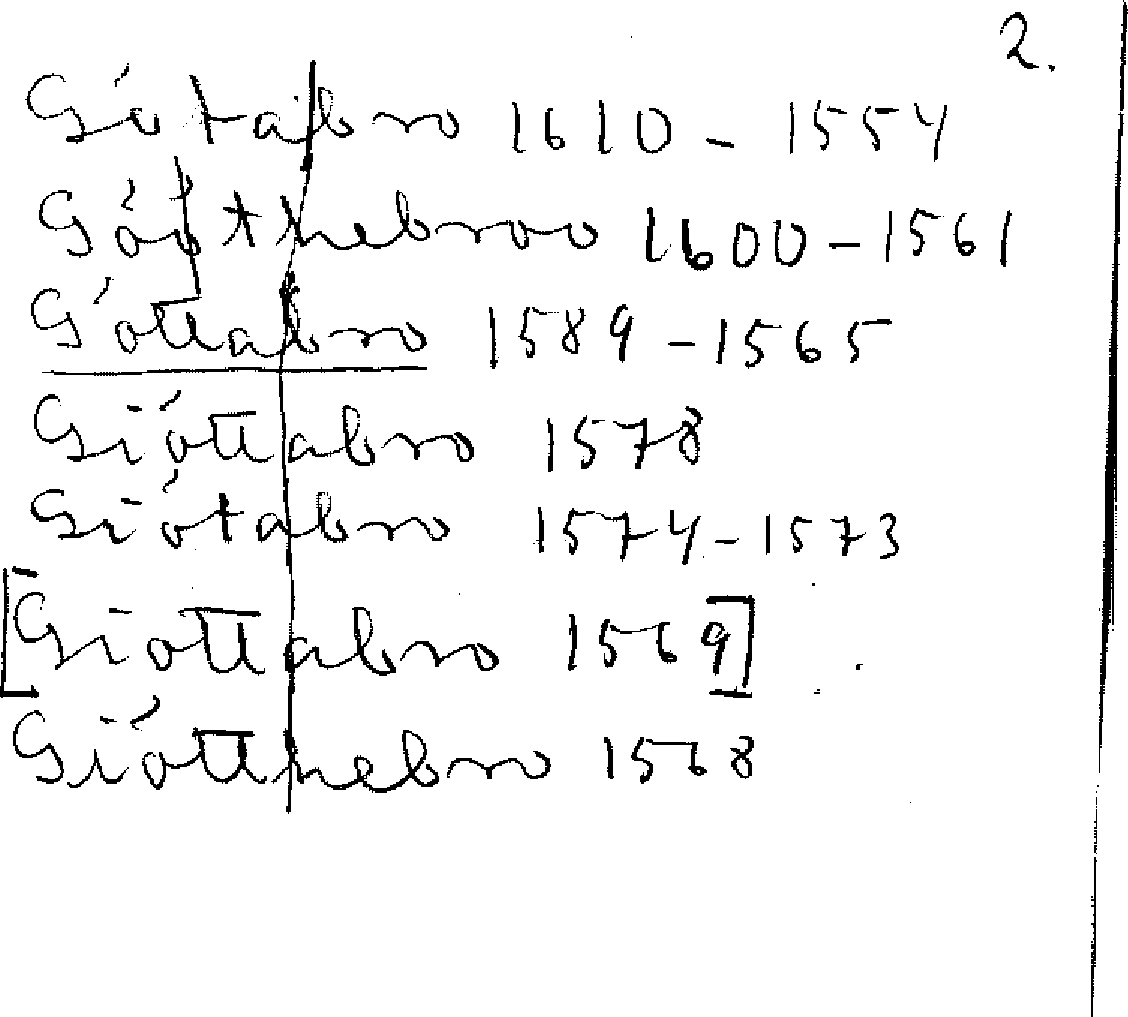 2.
Götabro 1610 - 1554
Göötthebroo 1600 - 1561
Göttabro 1589 - 1565
Giöttabro 1578
Giötabro 1574 - 1573
[Giöttabro 1569]
Giötthebro 1568